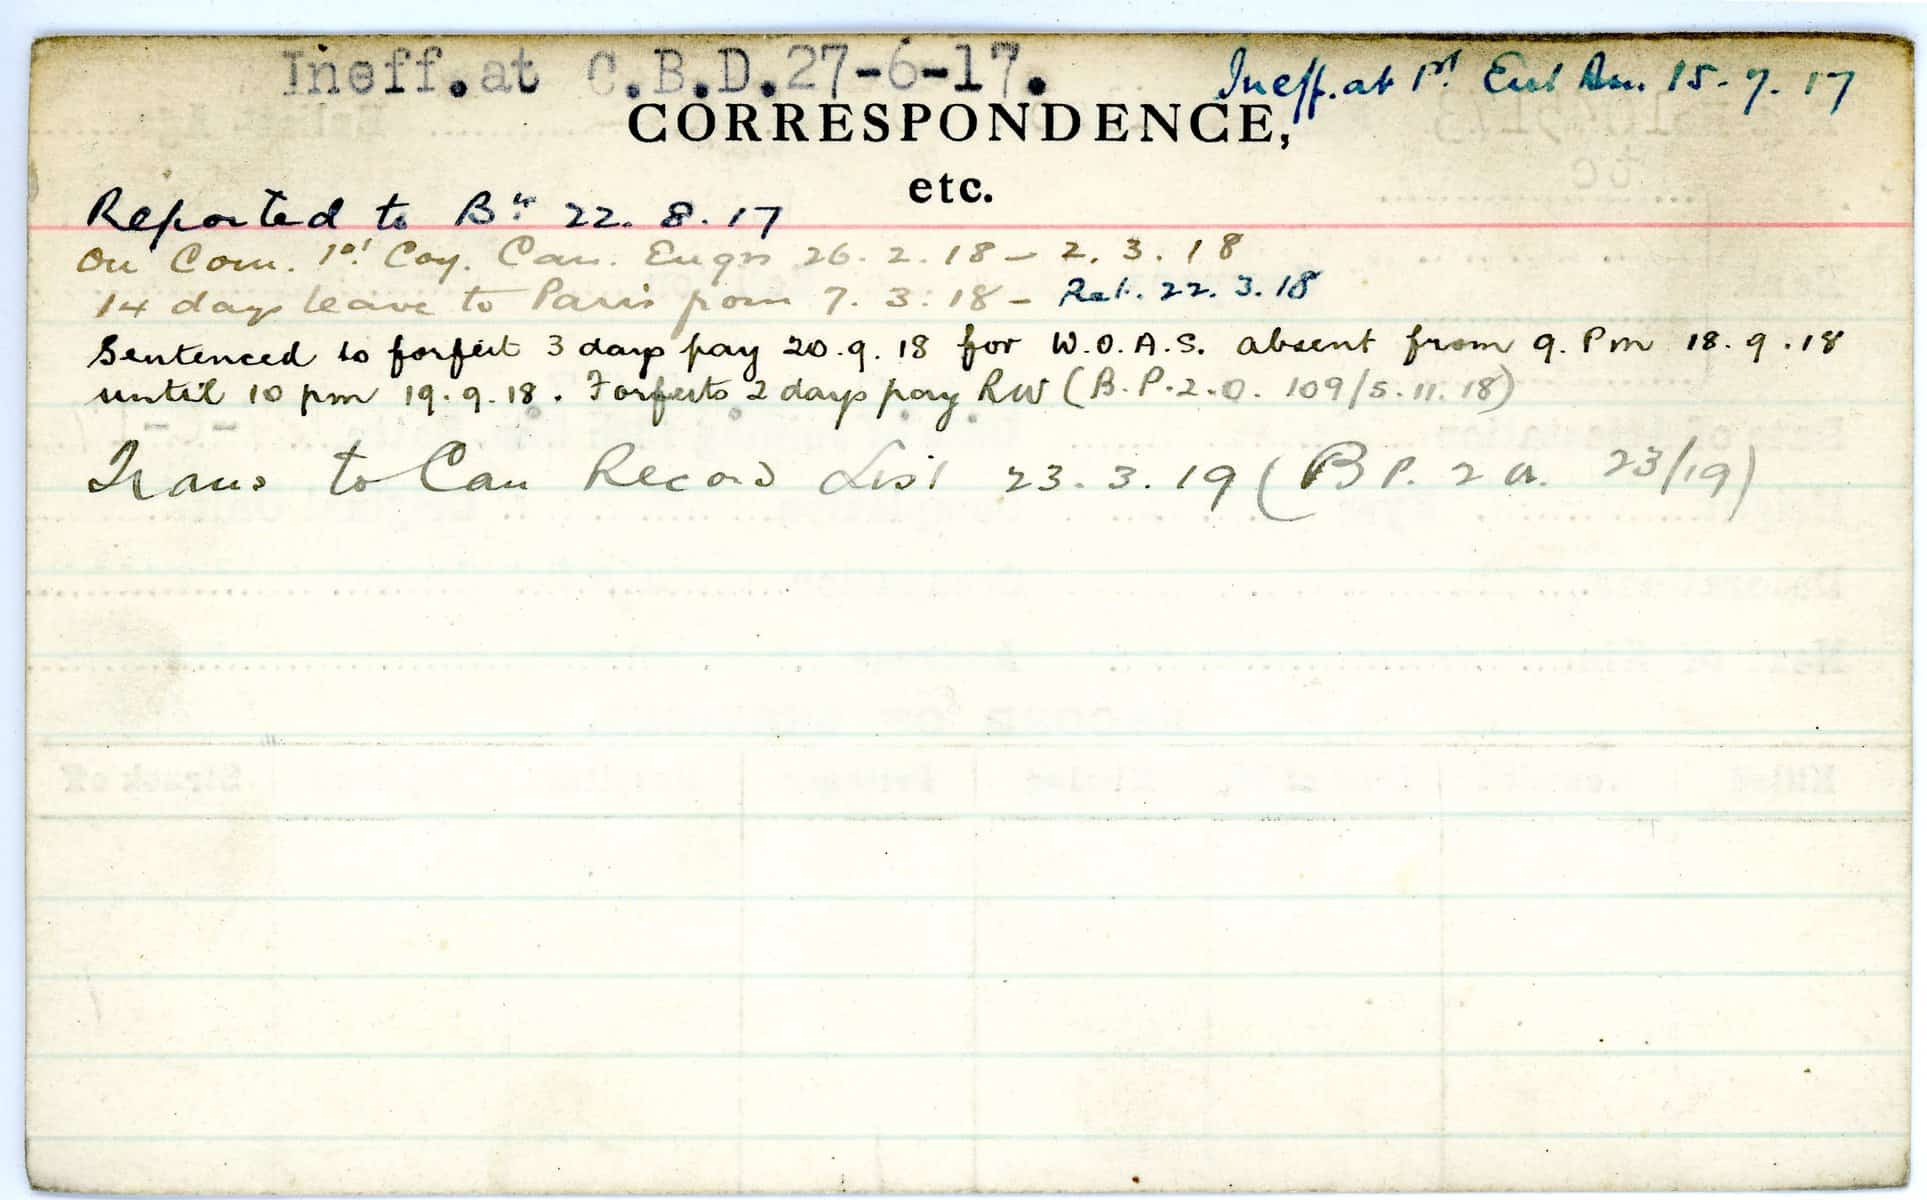 Ineff. at C.B.D. 27-6-17.
Ineff. at 1st Ent Bn. 15.7.17
CORRESPONDENCE,
etc.
Reported to Bn 22.8.17
On Com. 1st Coy. Can. Engrs 26.2.18 – 2.3.18
14 days leave to Paris from 7.3.18 – Ret. 22.3.18
Sentenced to forfeit 3 days pay 20.9.18 for W.O.A.S. absent from 9.Pm 18.9.18
until 10 pm 19.9.18. Forfeits 2 days pay RW (B.P.2.O. 109/5.11.18)
Trans to Can Record List 23.3.19 (B P. 2 O. 23/19)